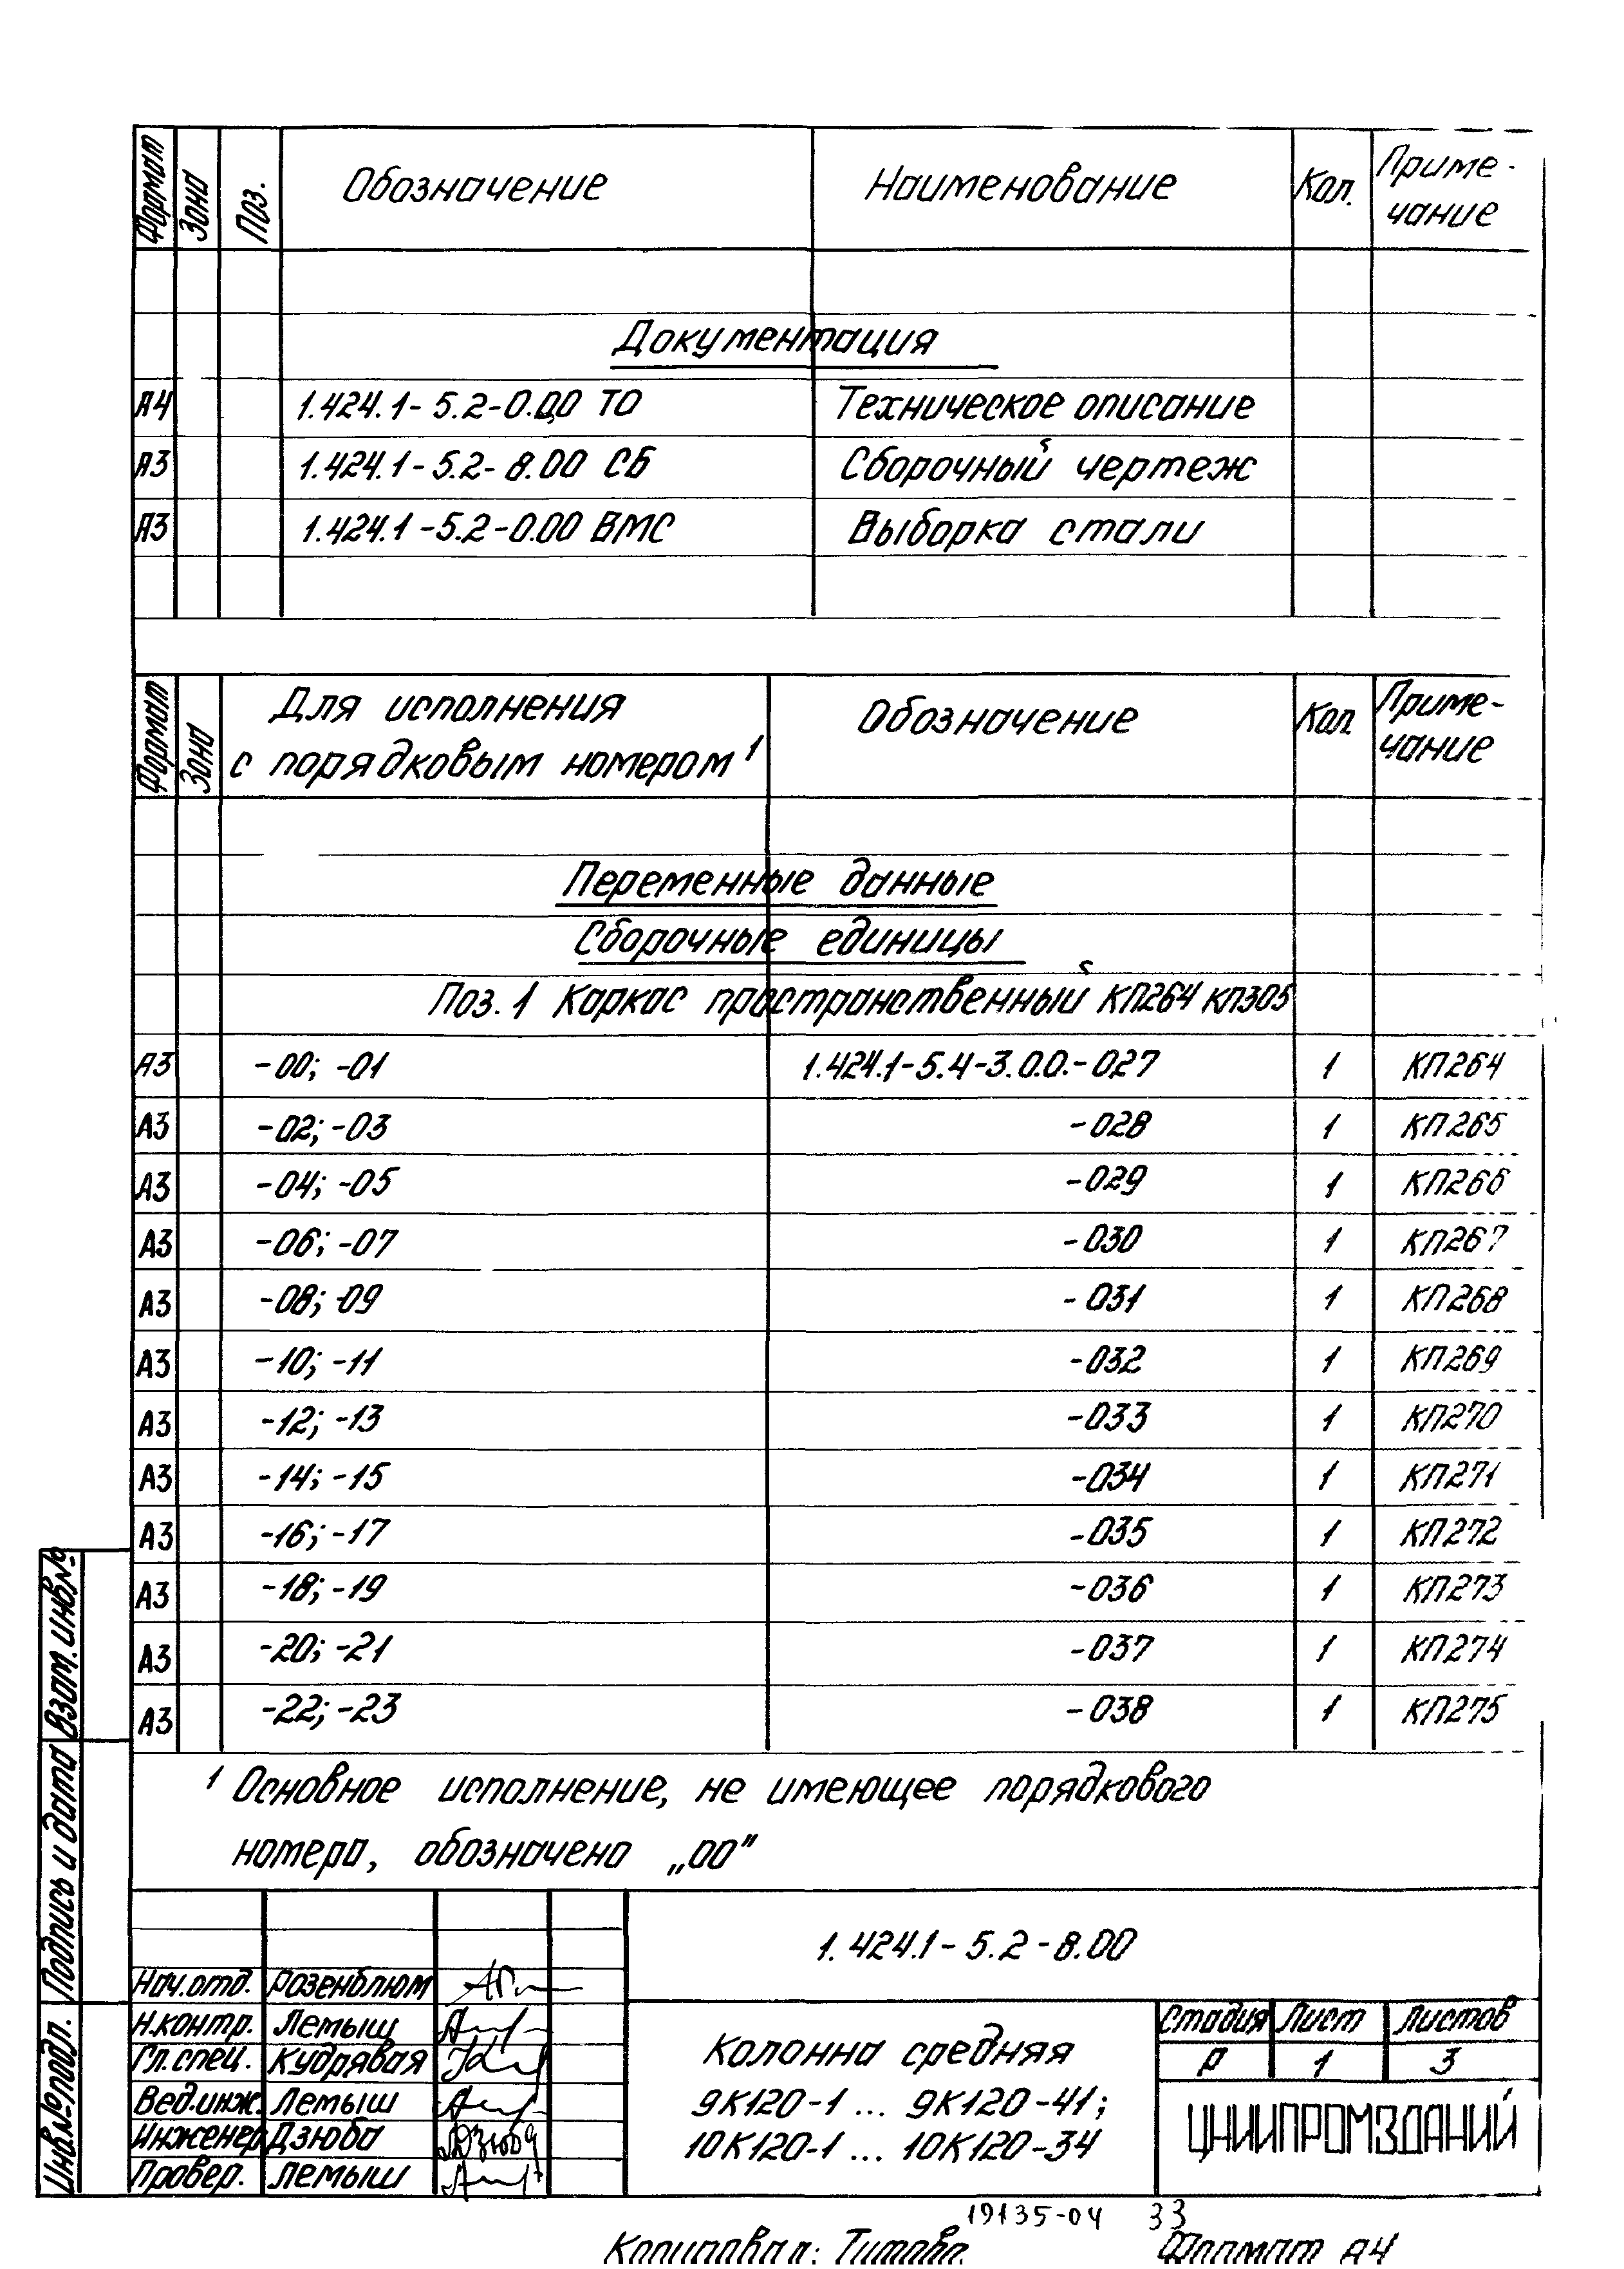 Формат Зона Поз. Обозначение Наименование Кол. Приме-
чание
Документация
А4 1.424.1-5.2-0.00 ТО Техническое описание
А3 1.424.1-5.2-8.00 СБ Сборочный чертеж
А3 1.424.1-5.2-0.00 ВМС Выборка стали
Формат Зона Для исполнения Обозначение Кол. Приме-
с порядковым номером 1 чание
Переменные данные
Сборочные единицы
Поз. 1 Каркас пространственный КП264 КП305
А3 -00; -01 1.424.1-5.4-3.0.0.-027 1 КП264
А3 -02; -03 -028 1 КП265
А3 -04; -05 -029 1 КП266
А3 -06; -07 -030 1 КП267
А3 -08; -09 -031 1 КП268
А3 -10; -11 -032 1 КП269
А3 -12; -13 -033 1 КП270
А3 -14; -15 -034 1 КП271
А3 -16; -17 -035 1 КП272
А3 -18; -19 -036 1 КП273
А3 -20; -21 -037 1 КП274
А3 -22; -23 -038 1 КП275
1 Основное исполнение, не имеющее порядкового
номера, обозначено „00”
Взам. инв№
Подпись и дата
Инв.№подл.
1.424.1-5.2-8.00
Нач.отд. Розенблюм
Н.контр. Лемыш
Гл.спец. Кудрявая
Вед.инж. Лемыш
Инженер Дзюба Дзюба
Провер. Лемыш
Колонна средняя
9К120-1 ... 9К120-41;
10К120-1 ... 10К120-34
Стадия Лист Листов
Р 1 3
ЦНИИПРОМЗДАНИЙ
19135-04 33
Копировал: Титова. Формат А4